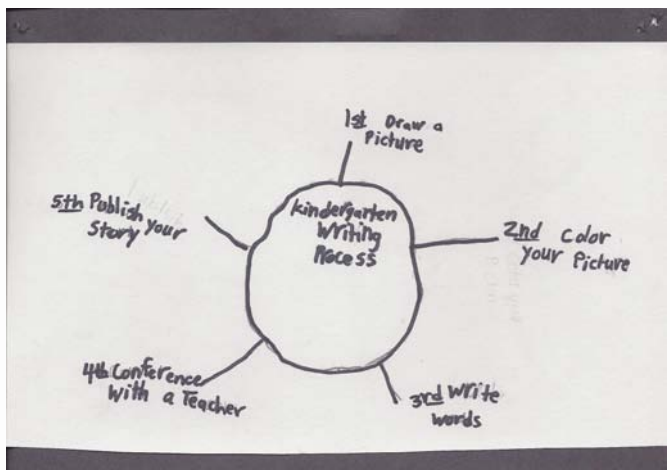 kindergarten
Writing
Process
1st Draw a
Picture
2nd Color
your Picture
3rd Write
words
4th Conference
With a Teacher
5th Publish
your
Story